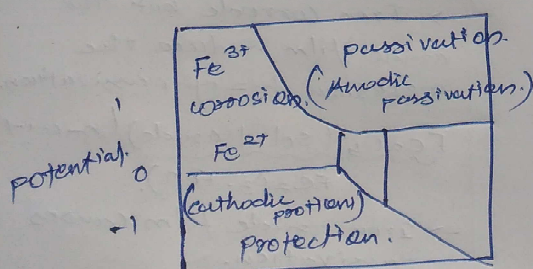 Fe3+
passivation.
corrosion.
(Anodic
passivation.)
1
Fe2+
potential.
0
(cathodic
protions)
-1
protection.